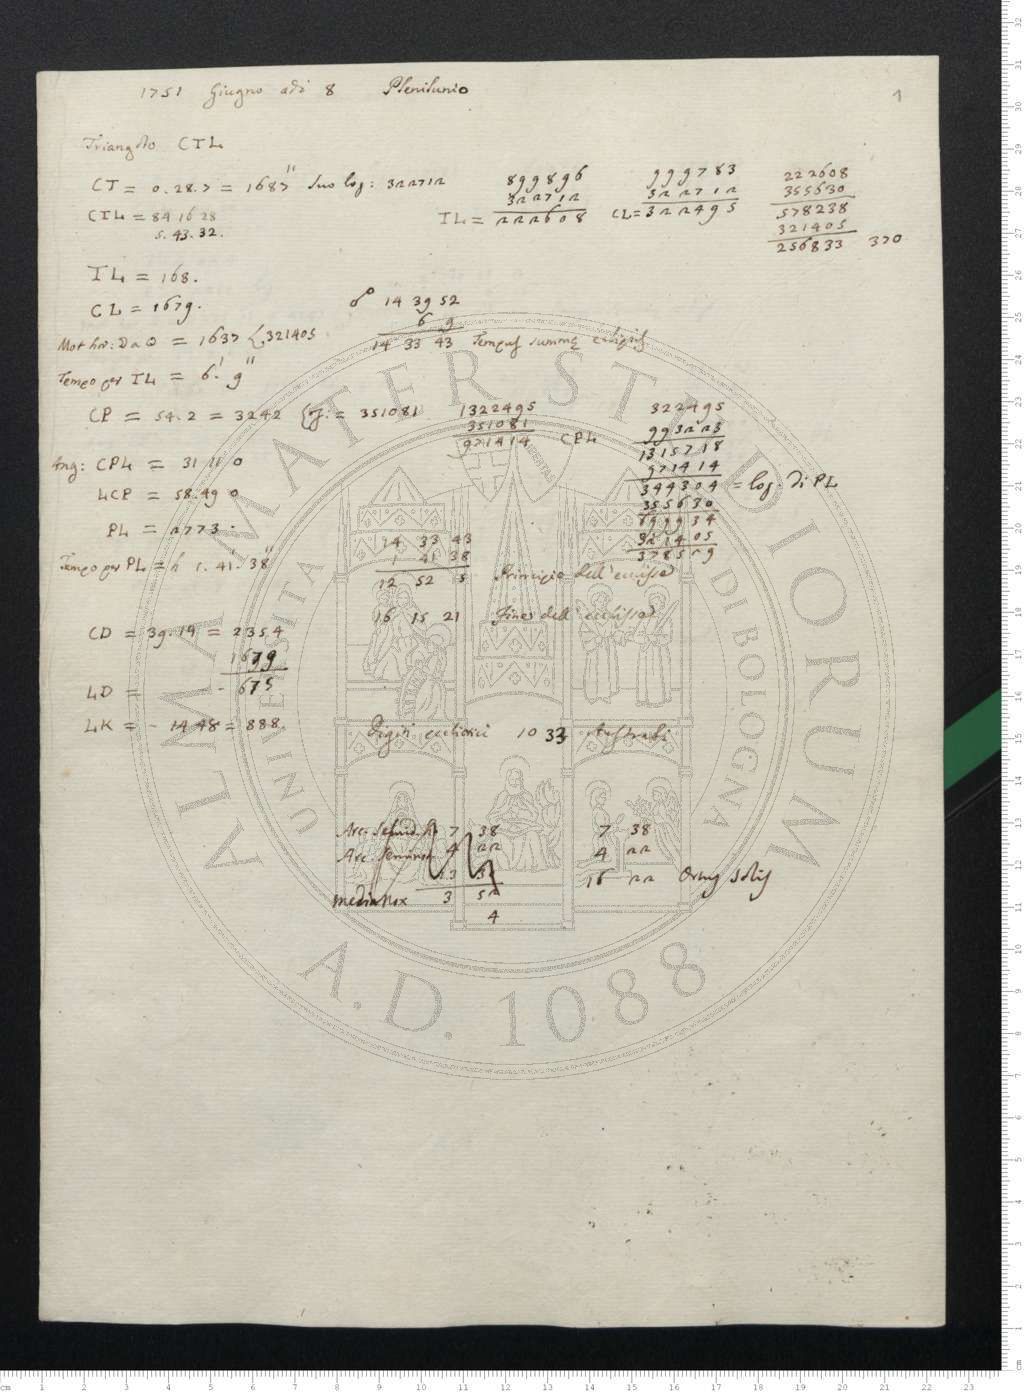 1751 Giugno adi 8 Plenilunio
1
Triangolo CTL
CT = 0.28.7 = 1687" suo log: 322712
CTL = 84 16 28
5.43.32.
899896
322712
TL = 222608
999783
322712
CL = 322495
222608
355630
578238
321405
256833 370
TL = 168.
CL = 1679.
☍ 14 39 52
6 9
14 33 43 Tempus summę eclipsis
Mot hor: D a O = 1637 { 321405
Tempo per TL = 6' 9"
CP = 54.2 = 3242 {J: = 351081
1322495
351081
971414 CPL
322495
993223
1315718
971414
344304 = log. di PL
355630
699934
321405
378529
Ang: CPL = 31 11 0
LCP = 58.49 0
PL = 2773.
Tempo per PL = h 1. 41' 38"
14 33 43
1 41 38
12 52 5 Principio dell'eclisse
16 15 21 Fine dell'eclisse
CD = 39.14 = 2354
1679
LD = - 675
LK = - 14 48 = 888.
Digiti ecliptici 10 33 Australi
Arc. Semid. 7 38
Arc. Seminoc. 4 22
media nox 3 52
4
7 38
4 22
16 22 Ortus Solis
ALMA MATER STUDIORUM
UNIVERSITA DI BOLOGNA
A.D. 1088